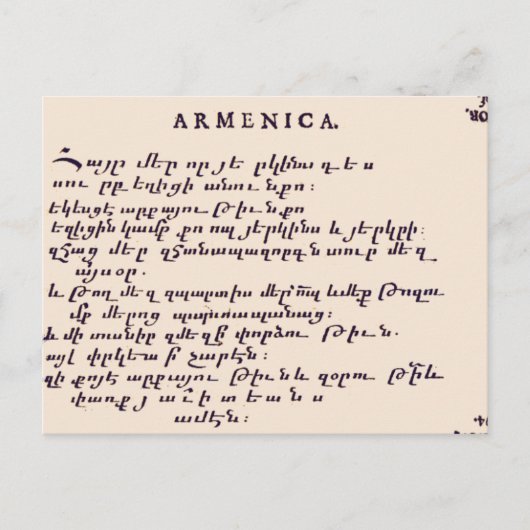 ARMENICA.
Հայր մեր որ յե րկինս գ ե ս
սուրբ եղիցի անուն քո:
եկեսցէ արքայու թիւն քո
եղիցին կամք քո որպ յերկինս և յերկրի:
զհաց մեր զհանապազորդն տուր մեզ
այսօր.
և թող մեզ զպարտիս մեր որպ և մեք թողու
մք մերոց պարտապանաց:
և մի տանիր զմեզ ի փորձու թիւն.
այլ փրկեա ի չարէն:
զի քոյէ արքայու թիւն և զօրու թի և
փառք յ ա ւ ի տ ե ա ն ս
ամէն:
OR.